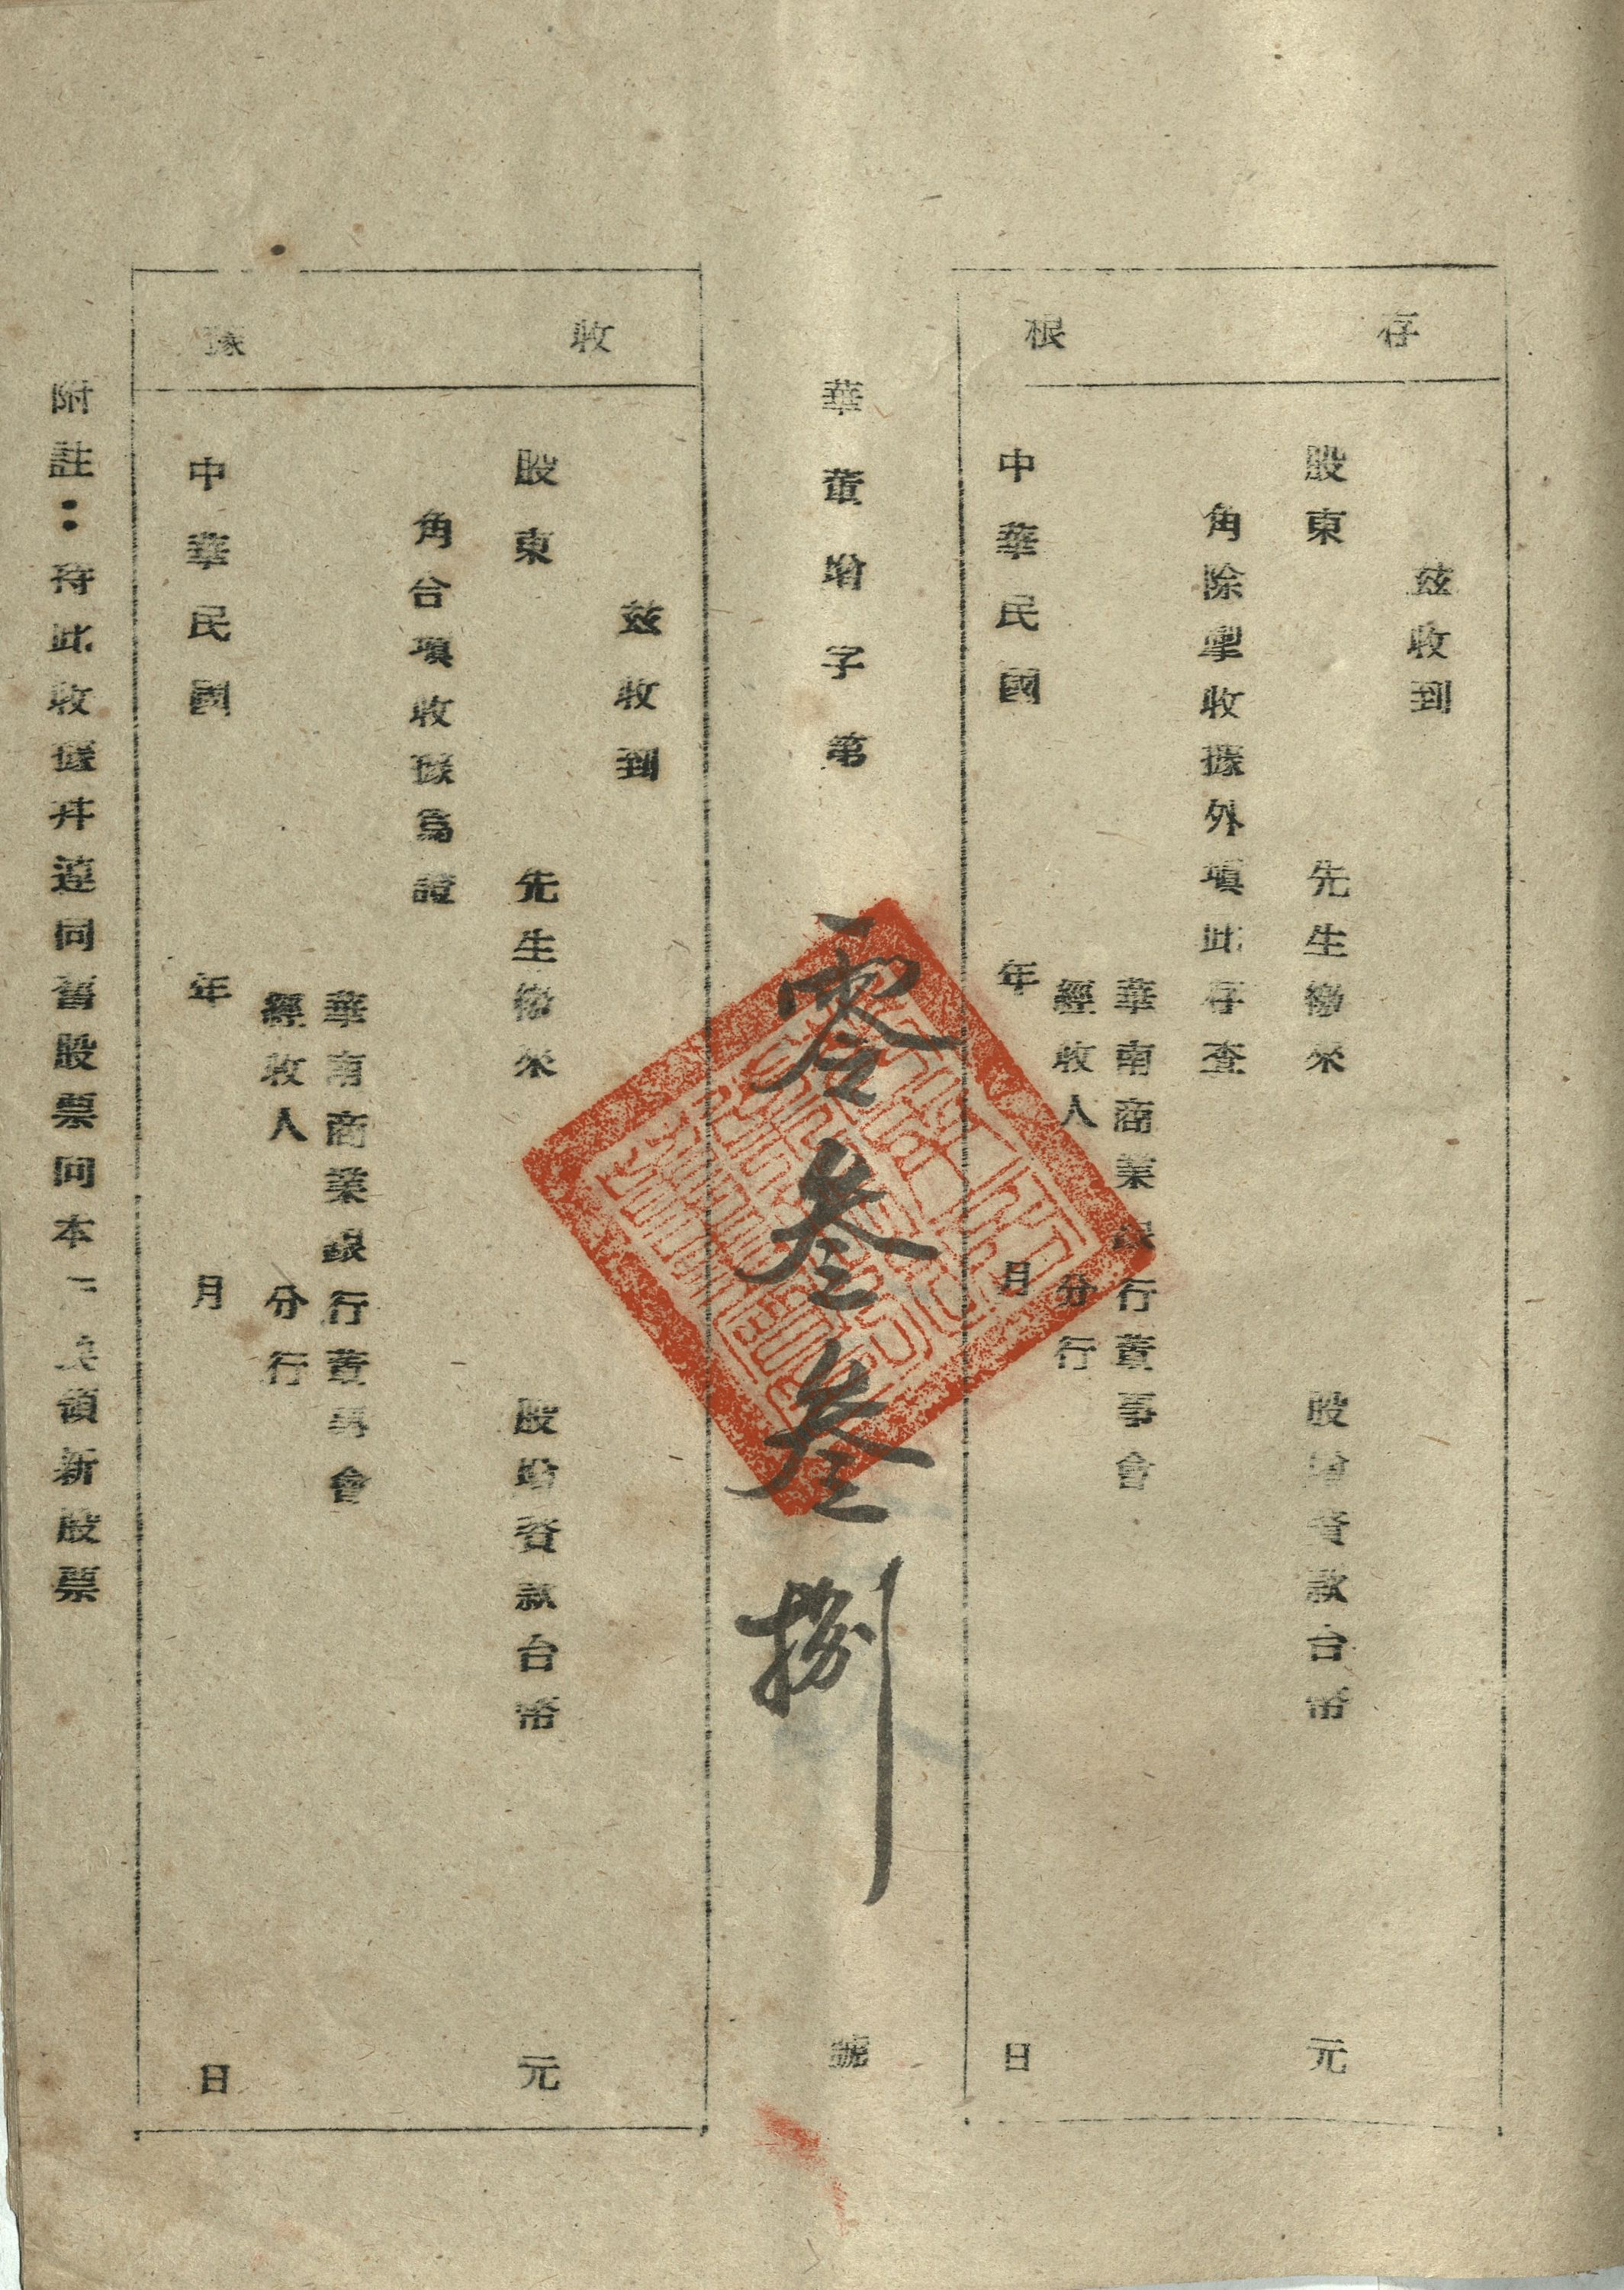 存根
茲收到
股東 先生繳來 股增資款台幣 元
角除掣收據外填此存查
華南商業銀行董事會
經收人 分行
中華民國 年 月 日
華董增字第零叁叁捌號
收據
茲收到
股東 先生繳來 股增資款台幣 元
角合填收據為證
華南商業銀行董事會
經收人 分行
中華民國 年 月 日
附註：持此收據幷連同舊股票向本 領新股票